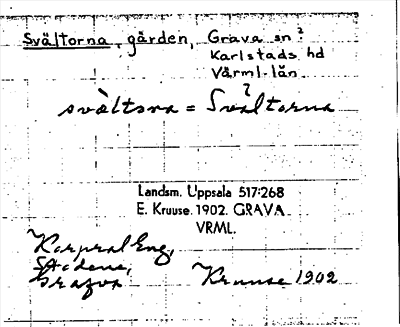 Svältorna, gården, Grava sn?
Karlstads hd
Värml. län
svältṡna = Svältorna
?
Landsm. Uppsala 517:268
E. Kruuse. 1902. GRAVA
VRML.
Korpral Eng,
Stodene,
Grafva Kruuse 1902